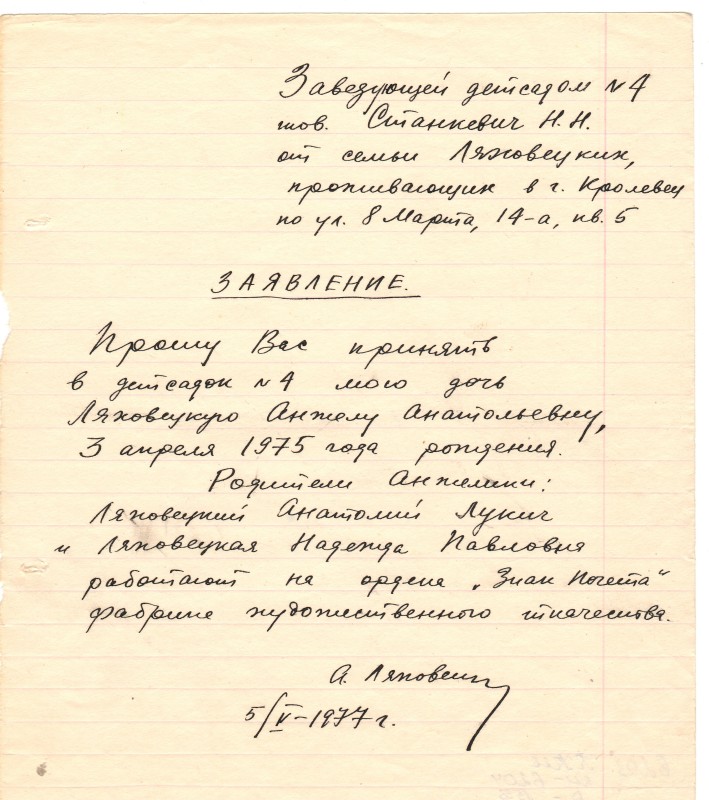 Заведующей детсадом N4
тов. Станкевич Н.Н.
от семьи Ляховецких,
проживающих в г. Кролевец
по ул. 8 Марта, 14-а, кв. 5
ЗАЯВЛЕНИЕ.
Прошу Вас принять
в детсадок N4 мою дочь
Ляховецкую Анжелу Анатольевну,
3 апреля 1975 года рождения.
Родители Анжелики:
Ляховецкий Анатолий Лукич
и Ляховецкая Надежда Павловна
работают на ордена „Знак Почета“
фабрике художественного ткачества.
А. Ляховец
5/V-1977 г.